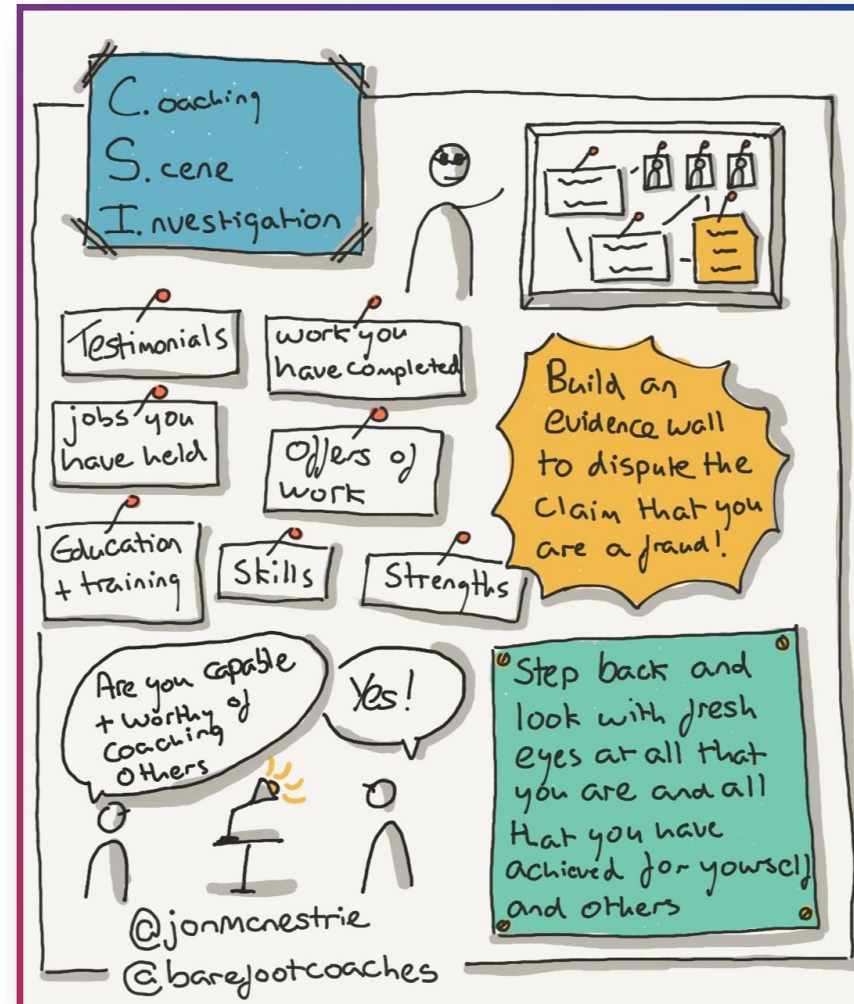 C.oaching
S.cene
I.nvestigation
Testimonials
work you
have completed
jobs you
have held
Offers of
work
Education
+ training
Skills
Strengths
Build an
evidence wall
to dispute the
claim that you
are a fraud!
Are you capable
+ worthy of
coaching
others
Yes!
Step back and
look with fresh
eyes at all that
you are and all
that you have
achieved for yourself
and others
@jonmcnestrie
@barefootcoaches